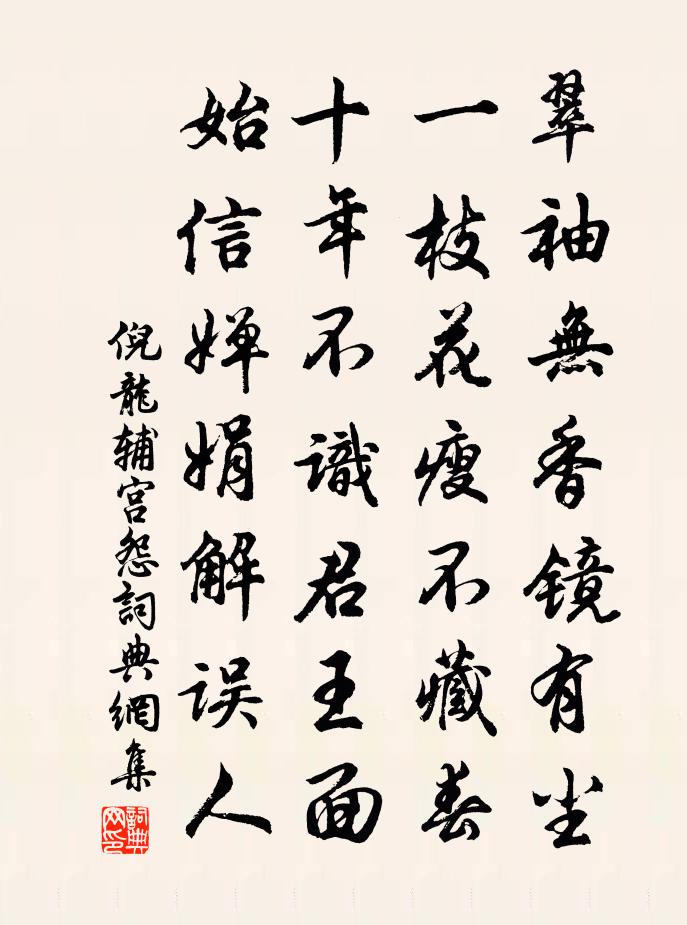 翠袖無香镜有尘
一枝花瘦不藏春
十年不識君王面
始信婵娟解误人
倪龍辅宫怨詞典網集
詞典网印